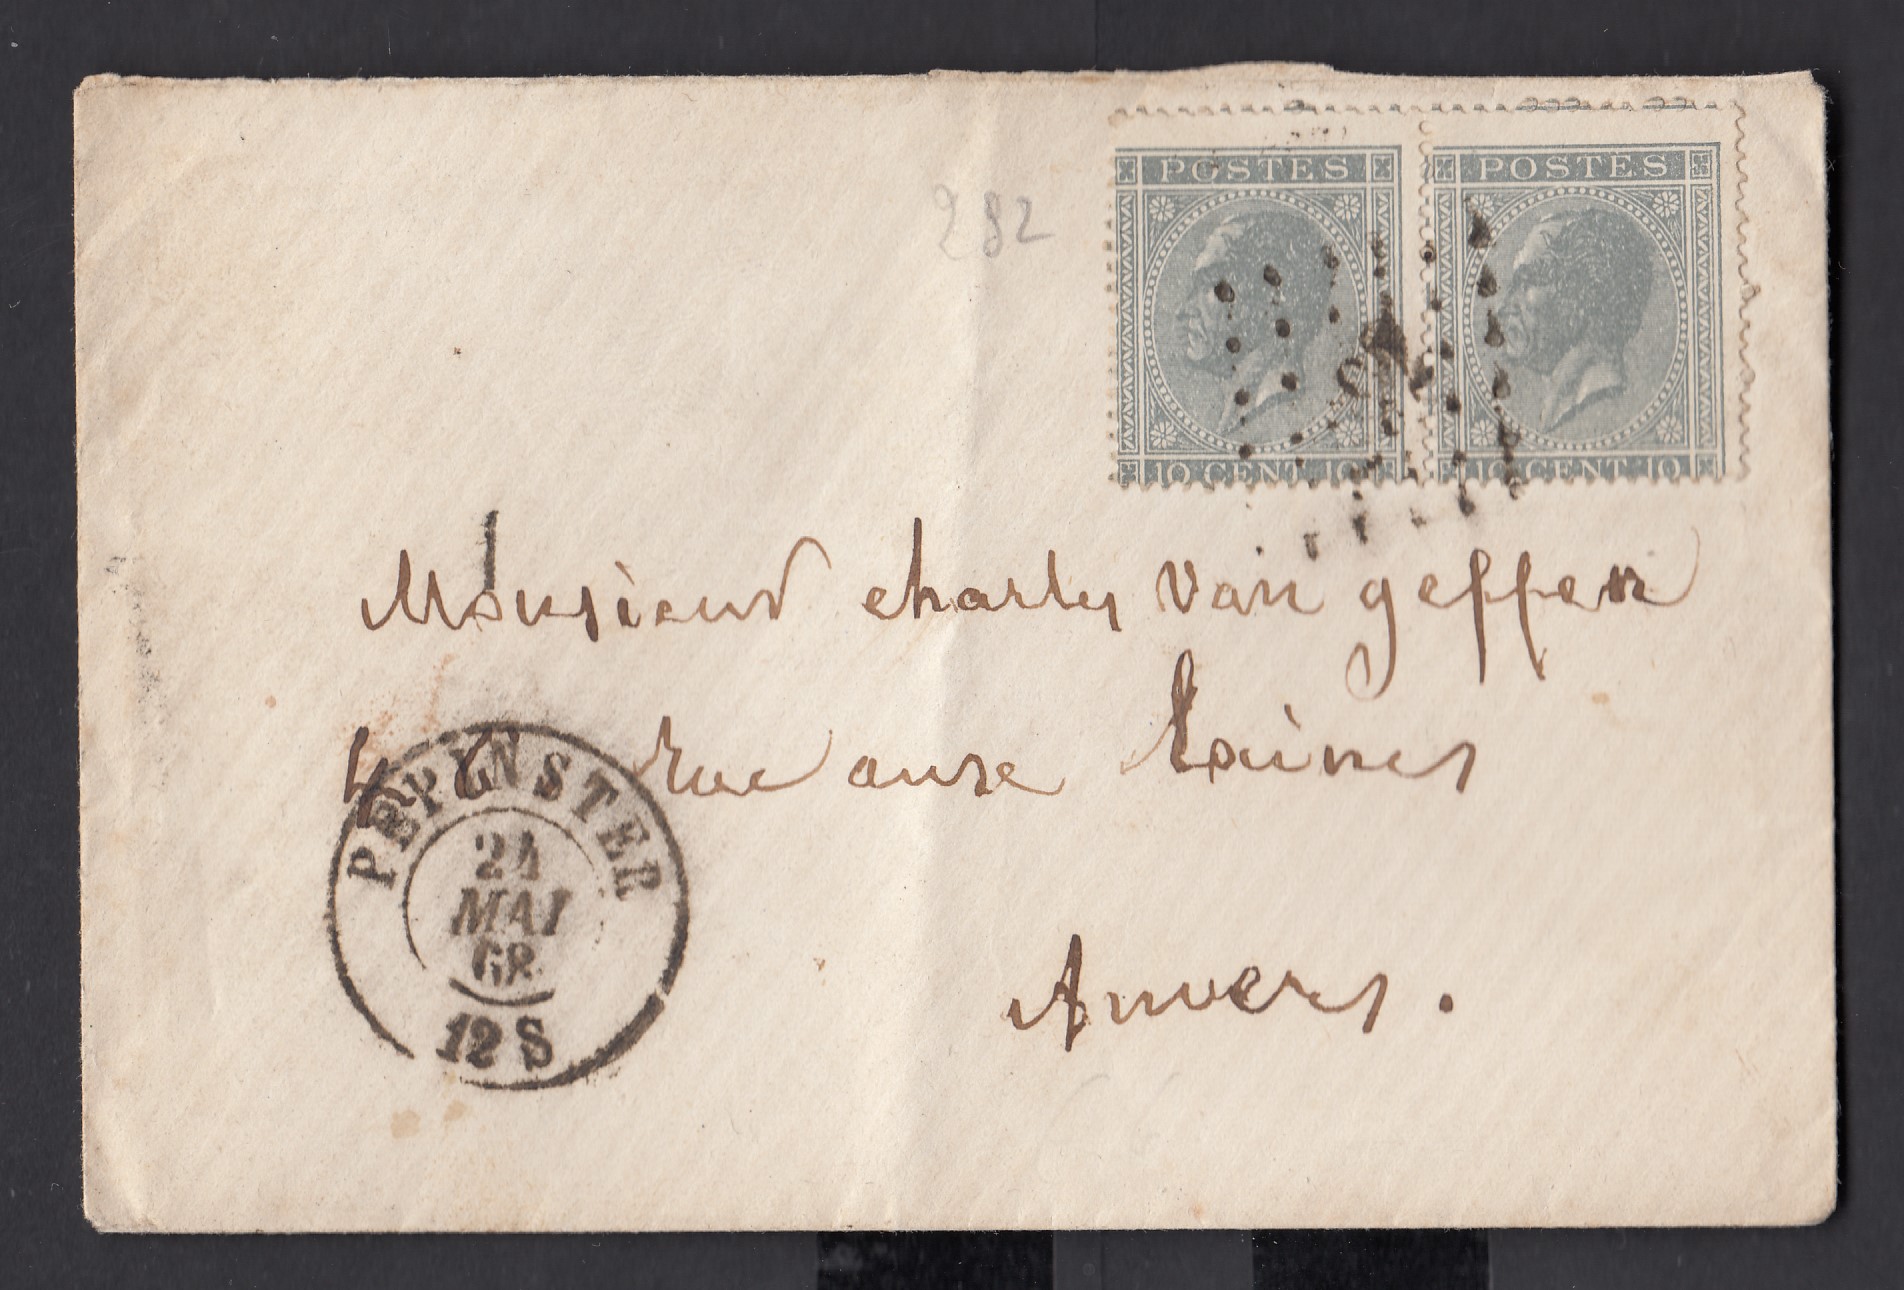 POSTES POSTES
282
10 CENT 10 10 CENT 10
Monsieur Charles Van geffen
Rue
Anvers.
PEPINSTER
24
MAI
68
12 S